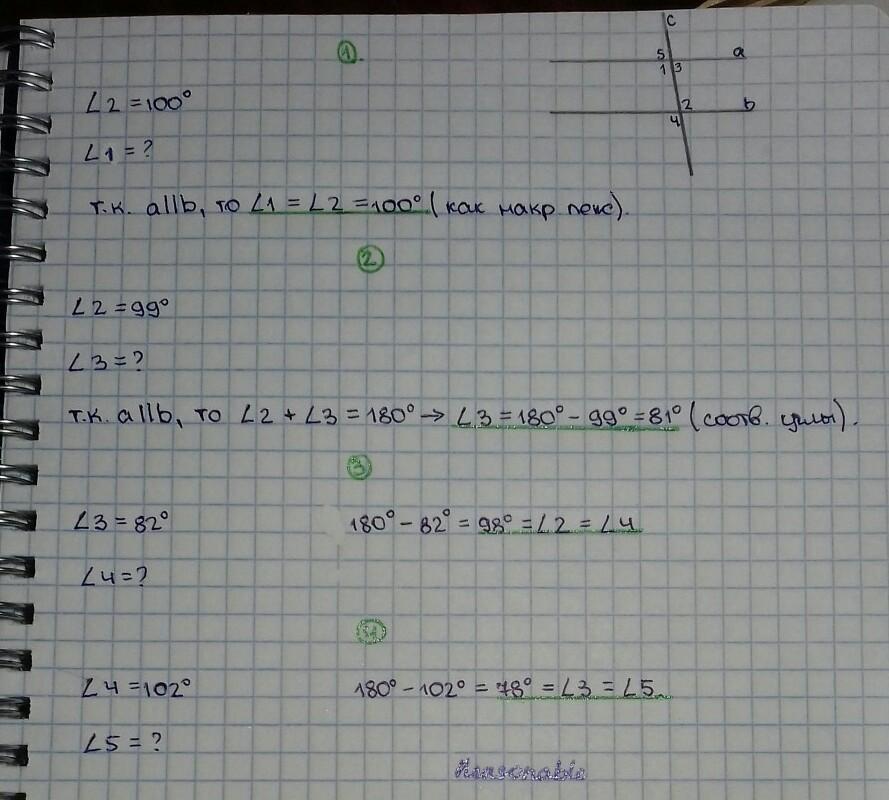 c
①
5
a
1 3
∠2 = 100°
2
b
4
∠1 = ?
т.к. a||b, то ∠1 = ∠2 = 100° (как накр лежс).
②
∠2 = 99°
∠3 = ?
т.к. a||b, то ∠2 + ∠3 = 180° → ∠3 = 180° - 99° = 81° (соотв. углы).
③
∠3 = 82°
180° - 82° = 98° = ∠2 = ∠4
∠4 = ?
∠4 = 102°
180° - 102° = 78° = ∠3 = ∠5
∠5 = ?